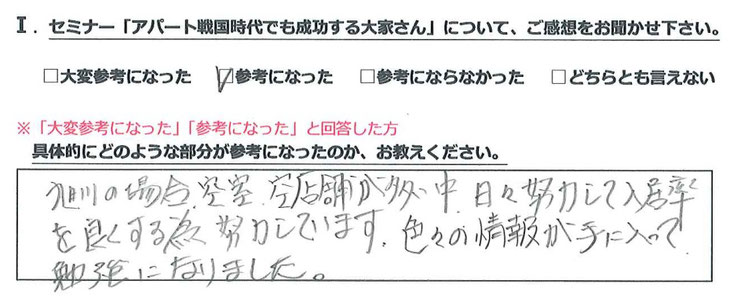 Ⅰ．セミナー「アパート戦国時代でも成功する大家さん」について、ご感想をお聞かせ下さい。
□大変参考になった ☑参考になった □参考にならなかった □どちらとも言えない
※「大変参考になった」「参考になった」と回答した方
具体的にどのような部分が参考になったのか、お教えください。
旭川の場合、空室、空店舗が多い中、日々努力して入居率
を良くする為努力しています。色々の情報が手に入って
勉強になりました。